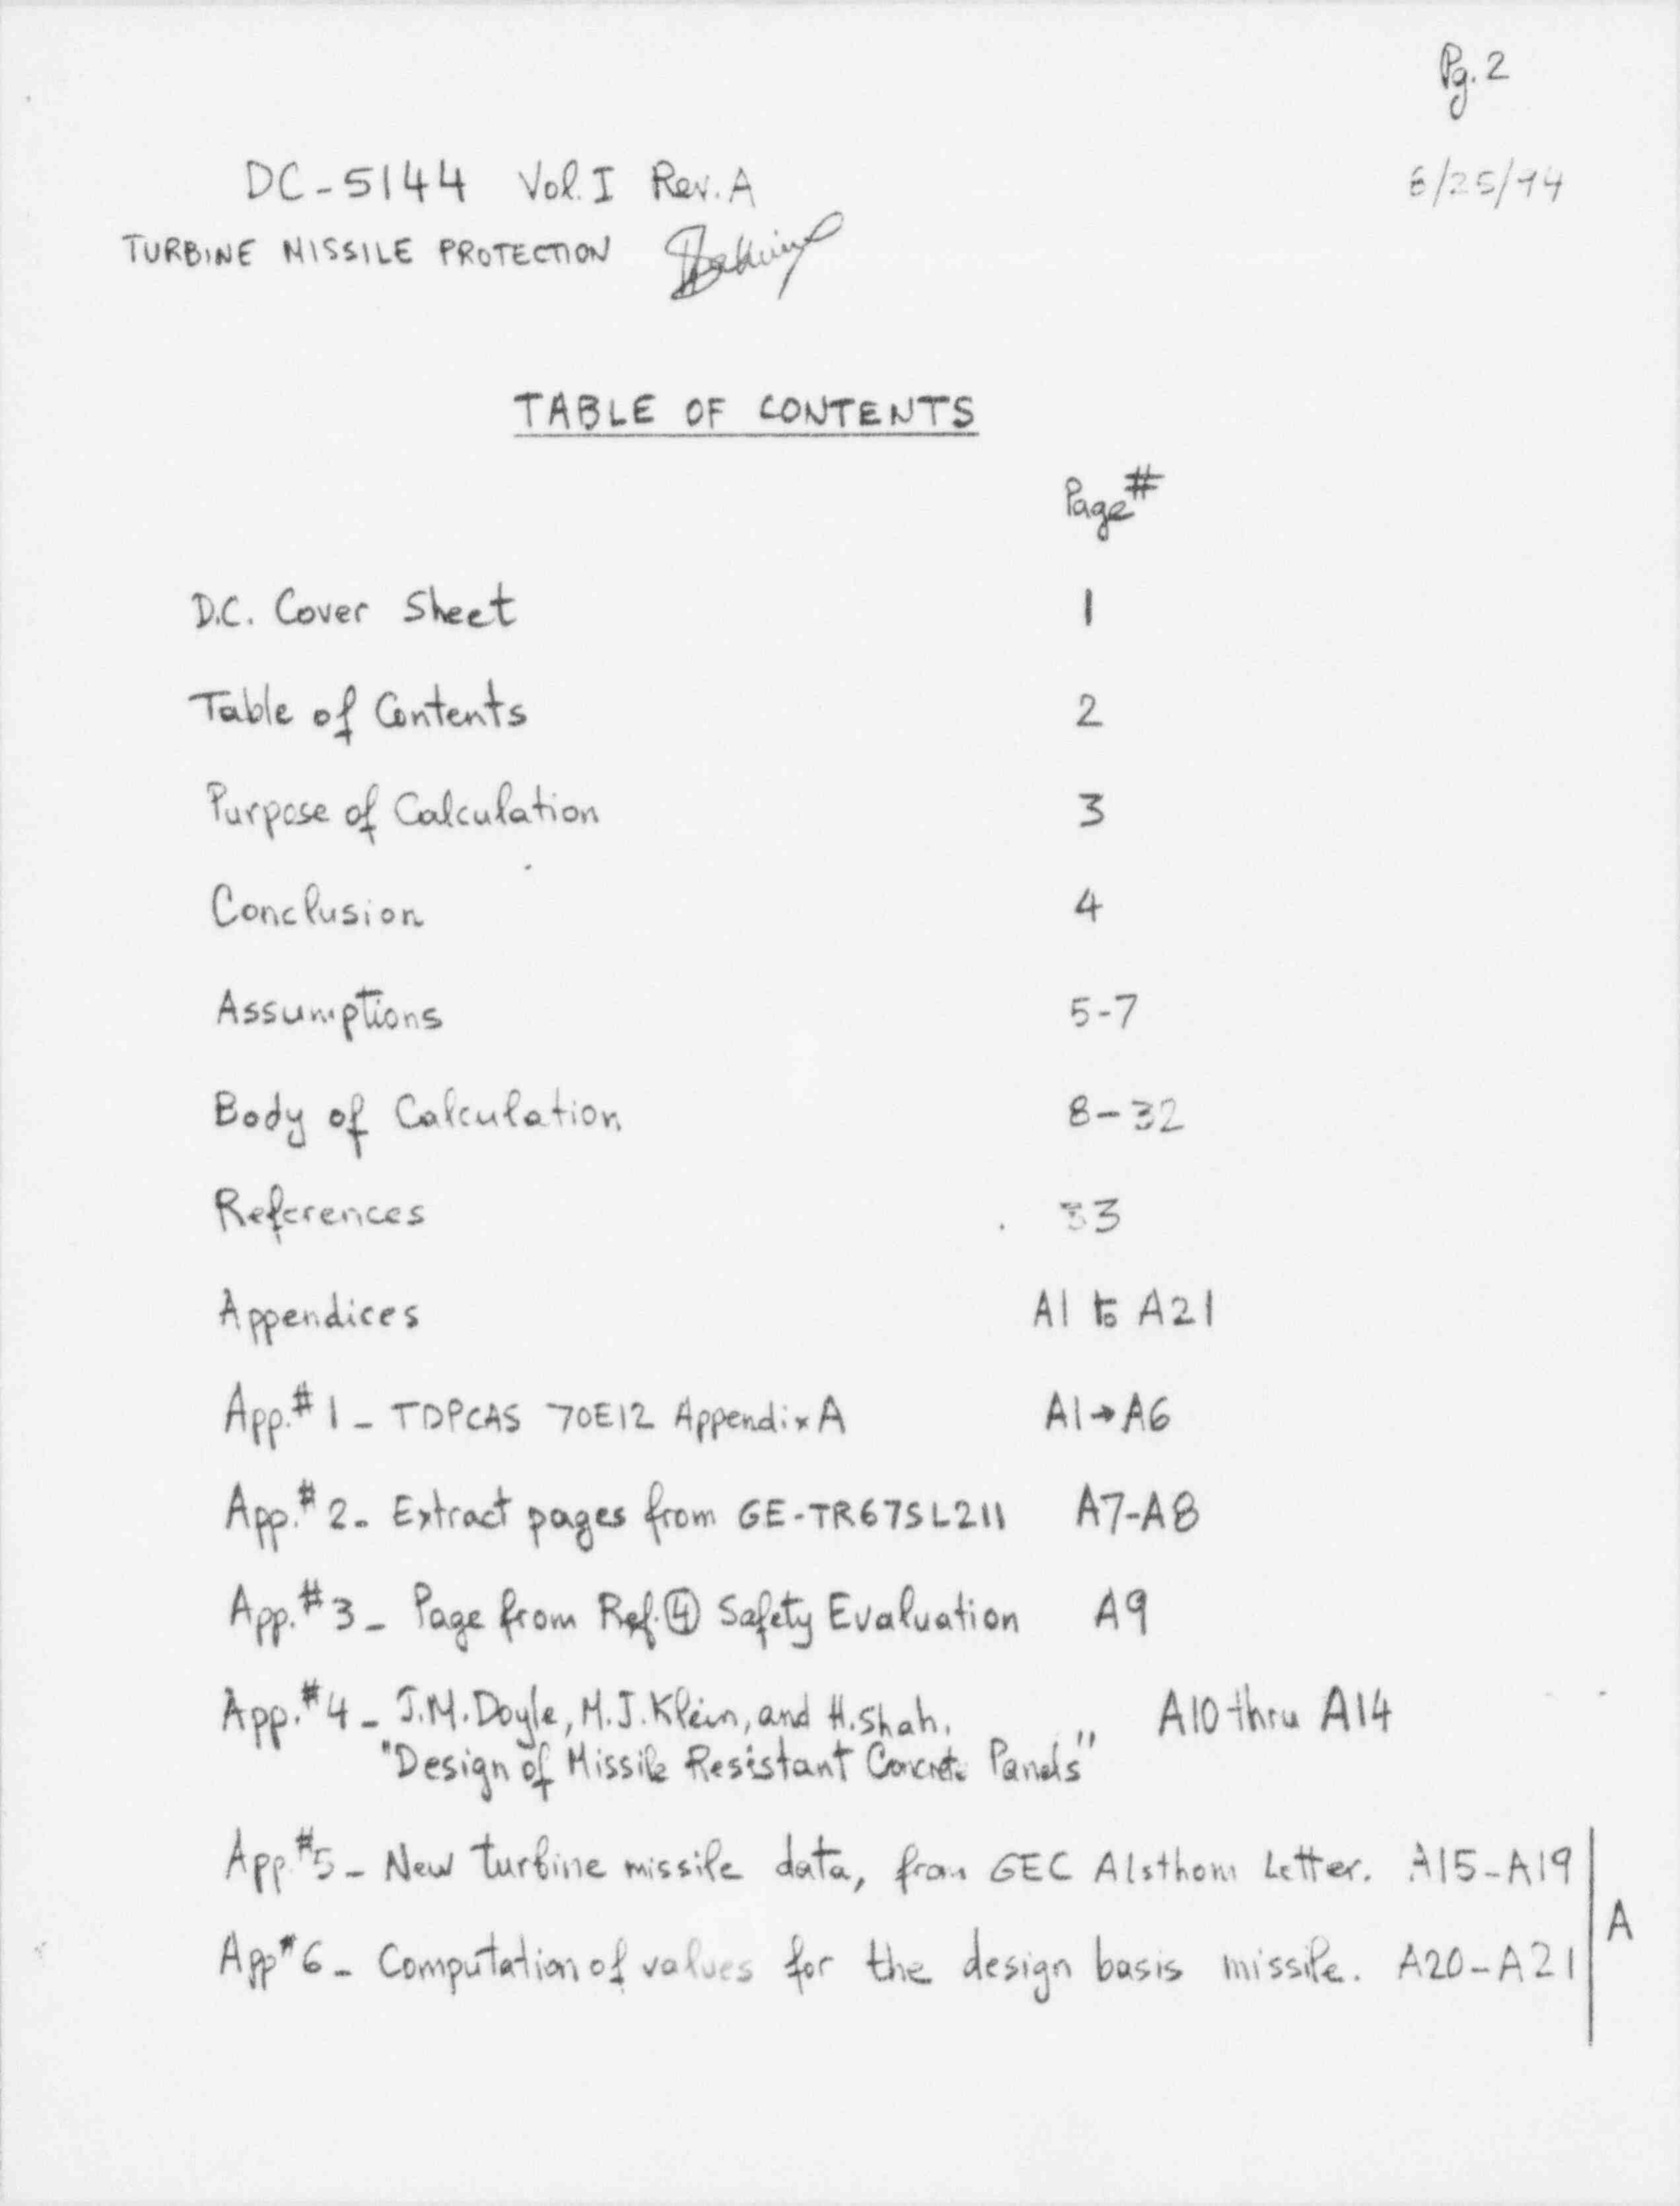 Pg. 2
DC-5144 Vol. I Rev. A
6/25/94
TURBINE MISSILE PROTECTION
TABLE OF CONTENTS
Page #
D.C. Cover Sheet 1
Table of Contents 2
Purpose of Calculation 3
Conclusion 4
Assumptions 5-7
Body of Calculation 8-32
References 33
Appendices A1 to A21
App. #1 - TDPCAS 70E12 Appendix A A1→A6
App. #2 - Extract pages from GE-TR67SL211 A7-A8
App. #3 - Page from Ref. ④ Safety Evaluation A9
App. #4 - J.M. Doyle, M.J. Klein, and H. Shah, A10 thru A14
"Design of Missile Resistant Concrete Panels"
App. #5 - New turbine missile data, from GEC Alsthom Letter. A15-A19
A
App #6 - Computation of values for the design basis missile. A20-A21